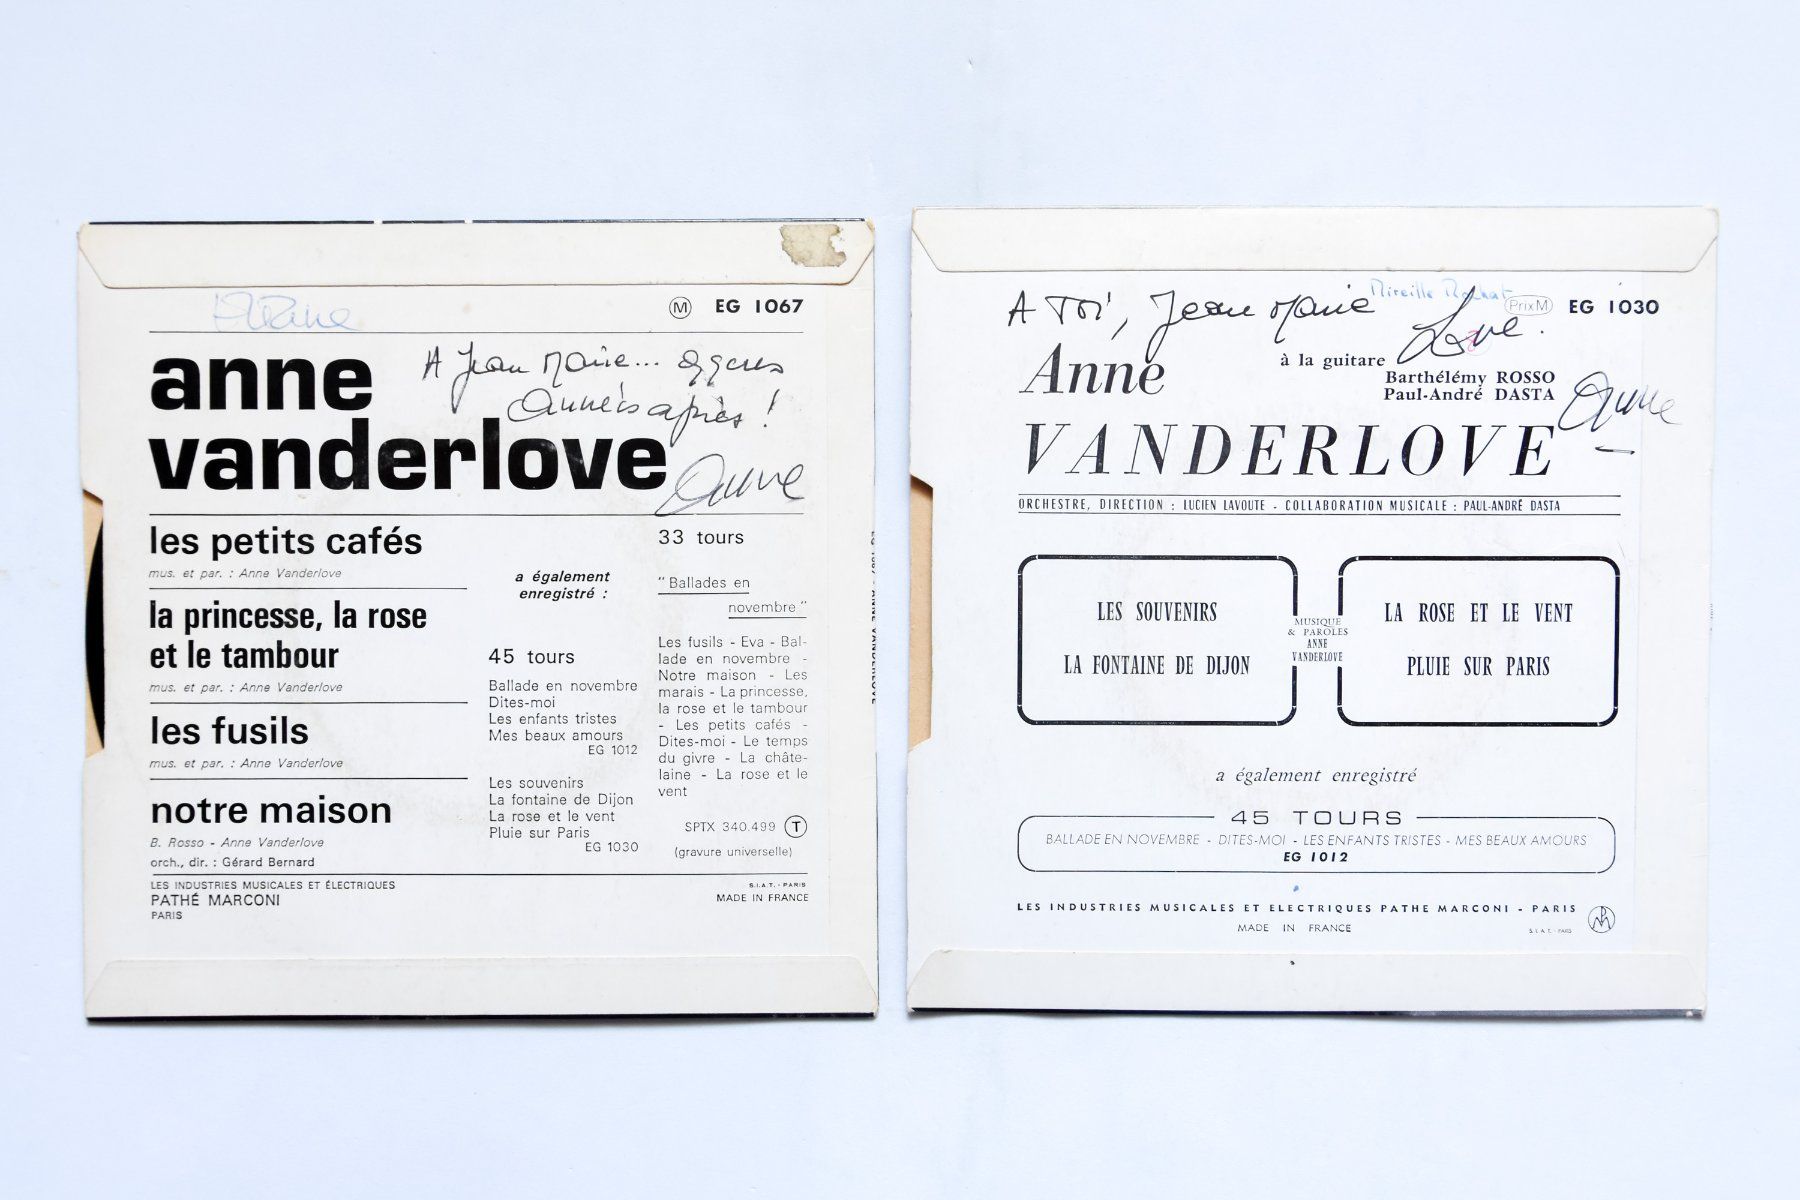 M EG 1067
anne
A Jean Marie...
Années après !
vanderlove
Anne
les petits cafés
mus. et par. : Anne Vanderlove
la princesse, la rose
et le tambour
mus. et par. : Anne Vanderlove
les fusils
mus. et par. : Anne Vanderlove
notre maison
B. Rosso - Anne Vanderlove
orch., dir. : Gérard Bernard
a également
enregistré :
45 tours
Ballade en novembre
Dites-moi
Les enfants tristes
Mes beaux amours
EG 1012
Les souvenirs
La fontaine de Dijon
La rose et le vent
Pluie sur Paris
EG 1030
33 tours
"Ballades en
novembre"
Les fusils - Eva - Bal-
lade en novembre -
Notre maison - Les
marais - La princesse,
la rose et le tambour
- Les petits cafés -
Dites-moi - Le temps
du givre - La châte-
laine - La rose et le
vent
SPTX 340.499 T
(gravure universelle)
LES INDUSTRIES MUSICALES ET ÉLECTRIQUES
PATHÉ MARCONI
PARIS
S.I.A.T. - PARIS
MADE IN FRANCE
EG 1067 - ANNE VANDERLOVE
Mireille Rochat
A Toi, Jean Marie
Love.
PrixM EG 1030
Anne
à la guitare
Barthélémy ROSSO
Paul-André DASTA
Anne
VANDERLOVE
ORCHESTRE, DIRECTION : LUCIEN LAVOUTE - COLLABORATION MUSICALE : PAUL-ANDRÉ DASTA
LES SOUVENIRS
LA FONTAINE DE DIJON
MUSIQUE
& PAROLES
ANNE
VANDERLOVE
LA ROSE ET LE VENT
PLUIE SUR PARIS
a également enregistré
45 TOURS
BALLADE EN NOVEMBRE - DITES-MOI - LES ENFANTS TRISTES - MES BEAUX AMOURS
EG 1012
LES INDUSTRIES MUSICALES ET ELECTRIQUES PATHE MARCONI - PARIS
MADE IN FRANCE
S.I.A.T. - PARIS